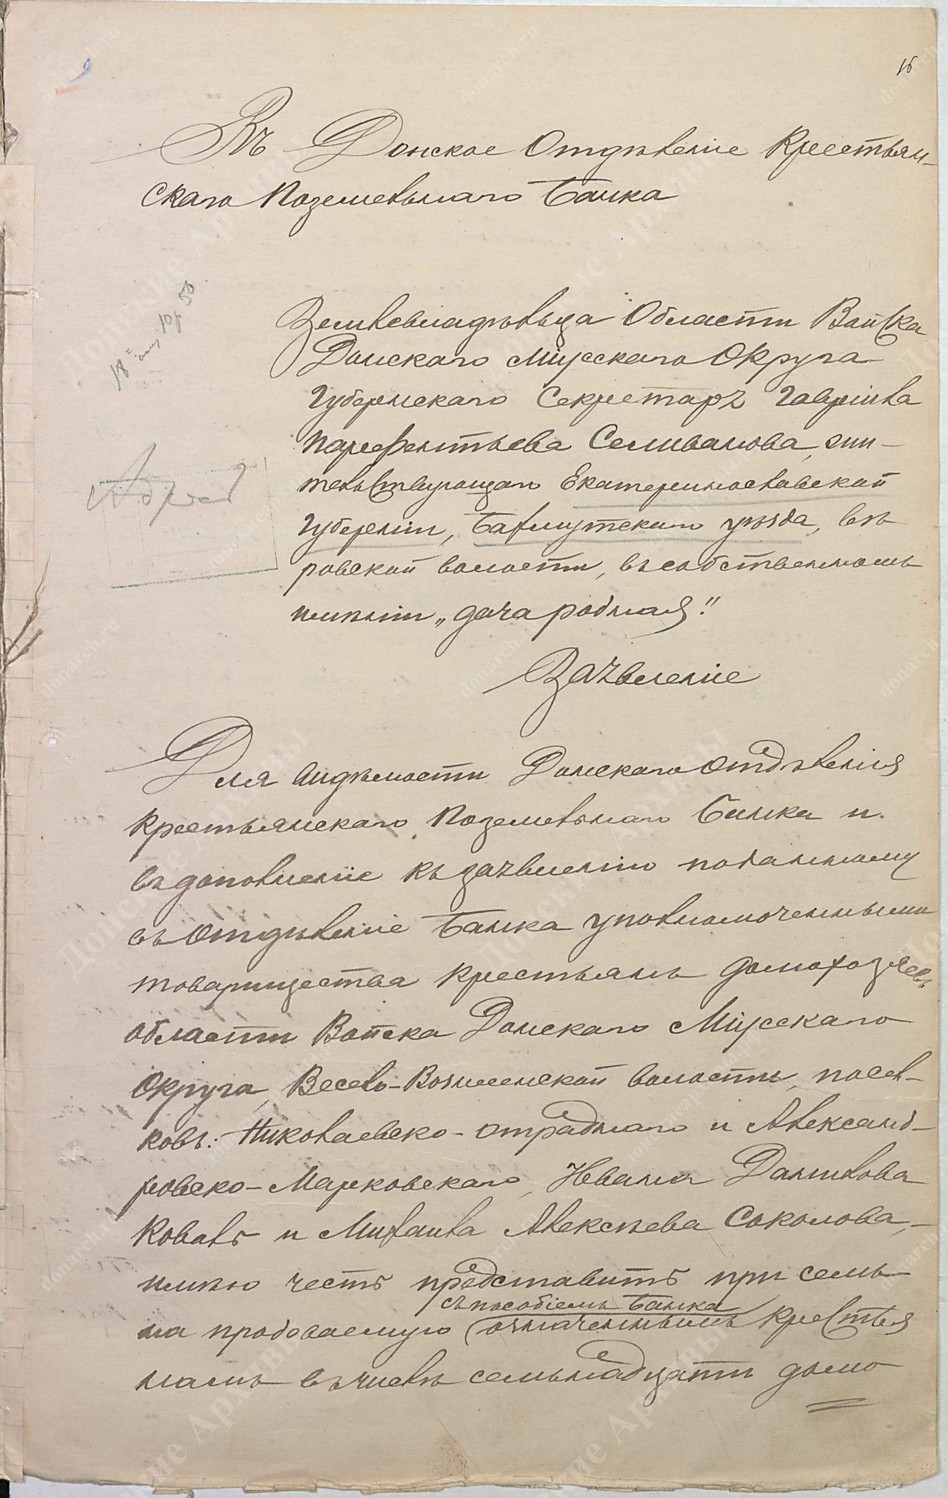 16
Въ Донское Отдѣленіе Крестьян-
скаго Поземельнаго Банка
Землевладѣльца Области Войска
Донскаго Міусскаго Округа
Губернскаго Секретаря Гавріила
Парфентьева Селиванова, жи-
тельствующаго Екатеринославской
Губерніи, Бахмутскаго уѣзда,
ровской волости, въ собственномъ
имѣніи „дача родная."
Адресъ
Заявленіе
Для видѣмости Донскаго отдѣленія
Крестьянскаго Поземельнаго Банка и
въ дополненіе къ заявленію поданному
въ Отдѣленіе Банка уполномоченными
товарищества крестьянъ домохозяевъ
области Войска Донскаго Міусскаго
Округа, Весело-Вознесенской волости, посел-
ковъ: Николаевско-отраднаго и Александ-
ровско-Марковскаго, Ивана Данилова
Коваль и Михаила Алексѣева Соколова,-
имѣю честь представить при семъ
съ пособіемъ Банка
на продаваемую означеннымъ крестья
намъ въ числѣ семьнадцати домо